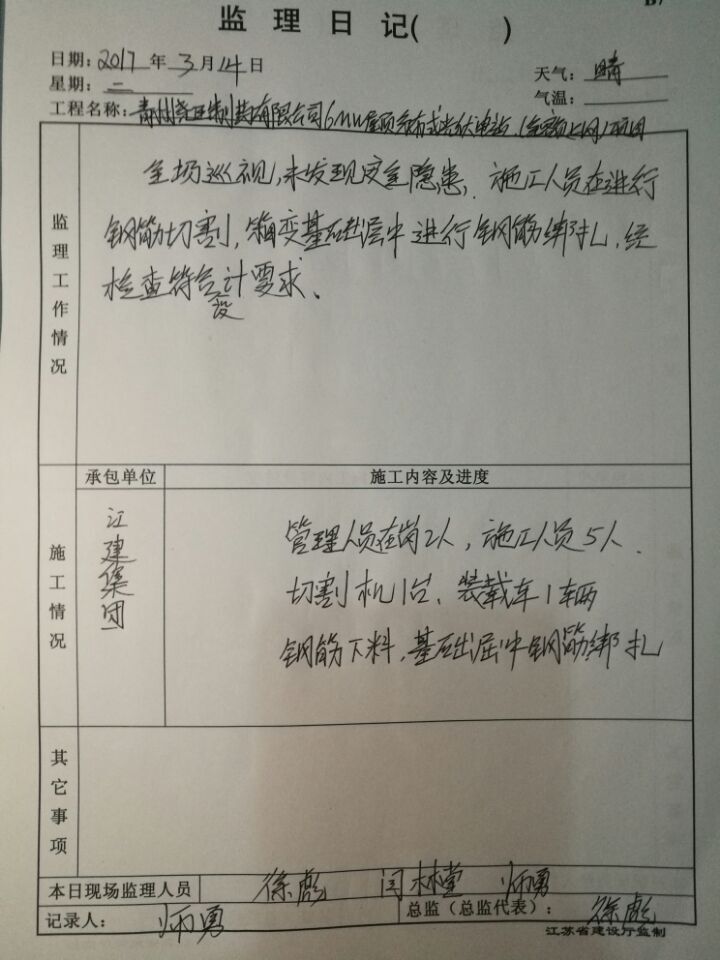 B7
监 理 日 记( )
日期: 2017 年 3 月 14 日
天气: 晴
星期: 二
气温:
工程名称: 青州尧王制药有限公司6MW屋顶分布式光伏电站(全额上网)项目
监理工作情况
全场巡视,未发现安全隐患,施工人员在进行
钢筋切割,箱变基础 中进行钢筋绑扎,经
检查符合设计要求、
施工情况
承包单位
施工内容及进度
江建集团
管理人员在岗2人,施工人员5人、
切割机1台、装载车1辆
钢筋下料,基础 中钢筋绑扎
其它事项
本日现场监理人员 徐彪 闫林堂 师勇
记录人: 师勇
总监(总监代表): 徐彪
江苏省建设厅监制